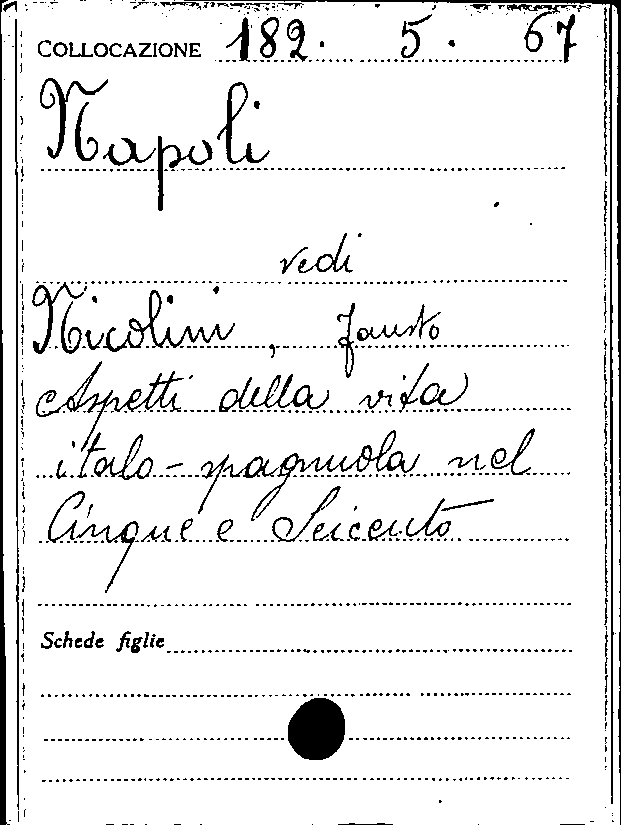 COLLOCAZIONE 182. 5. 67
Napoli
vedi
Nicolini, Fausto
Aspetti della vita
italo-spagnuola nel
Cinque e Seicento
Schede figlie